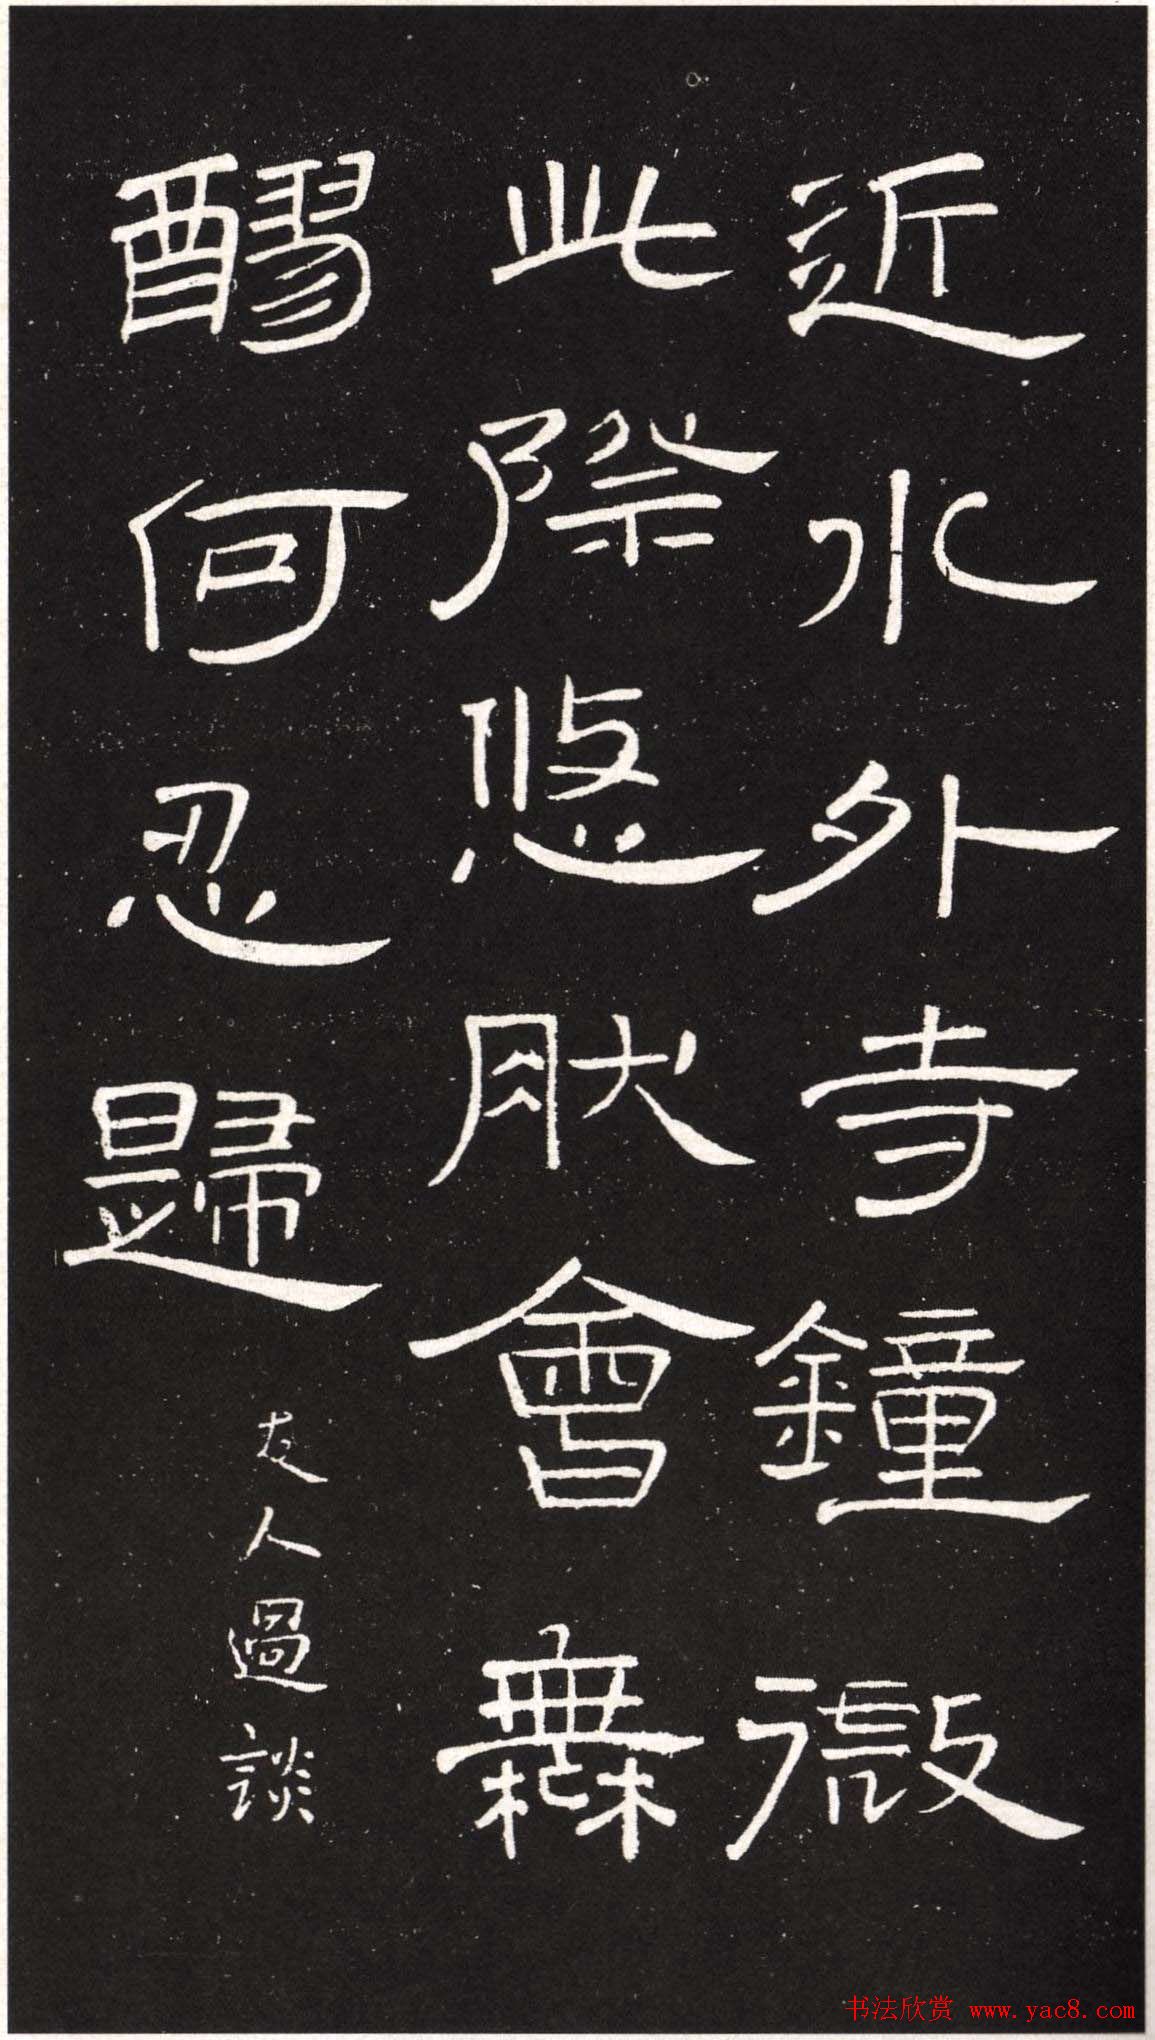 近水外寺鐘微
此際悠肰會無
醪何忍歸
友人過談
书法欣赏 www.yac8.com